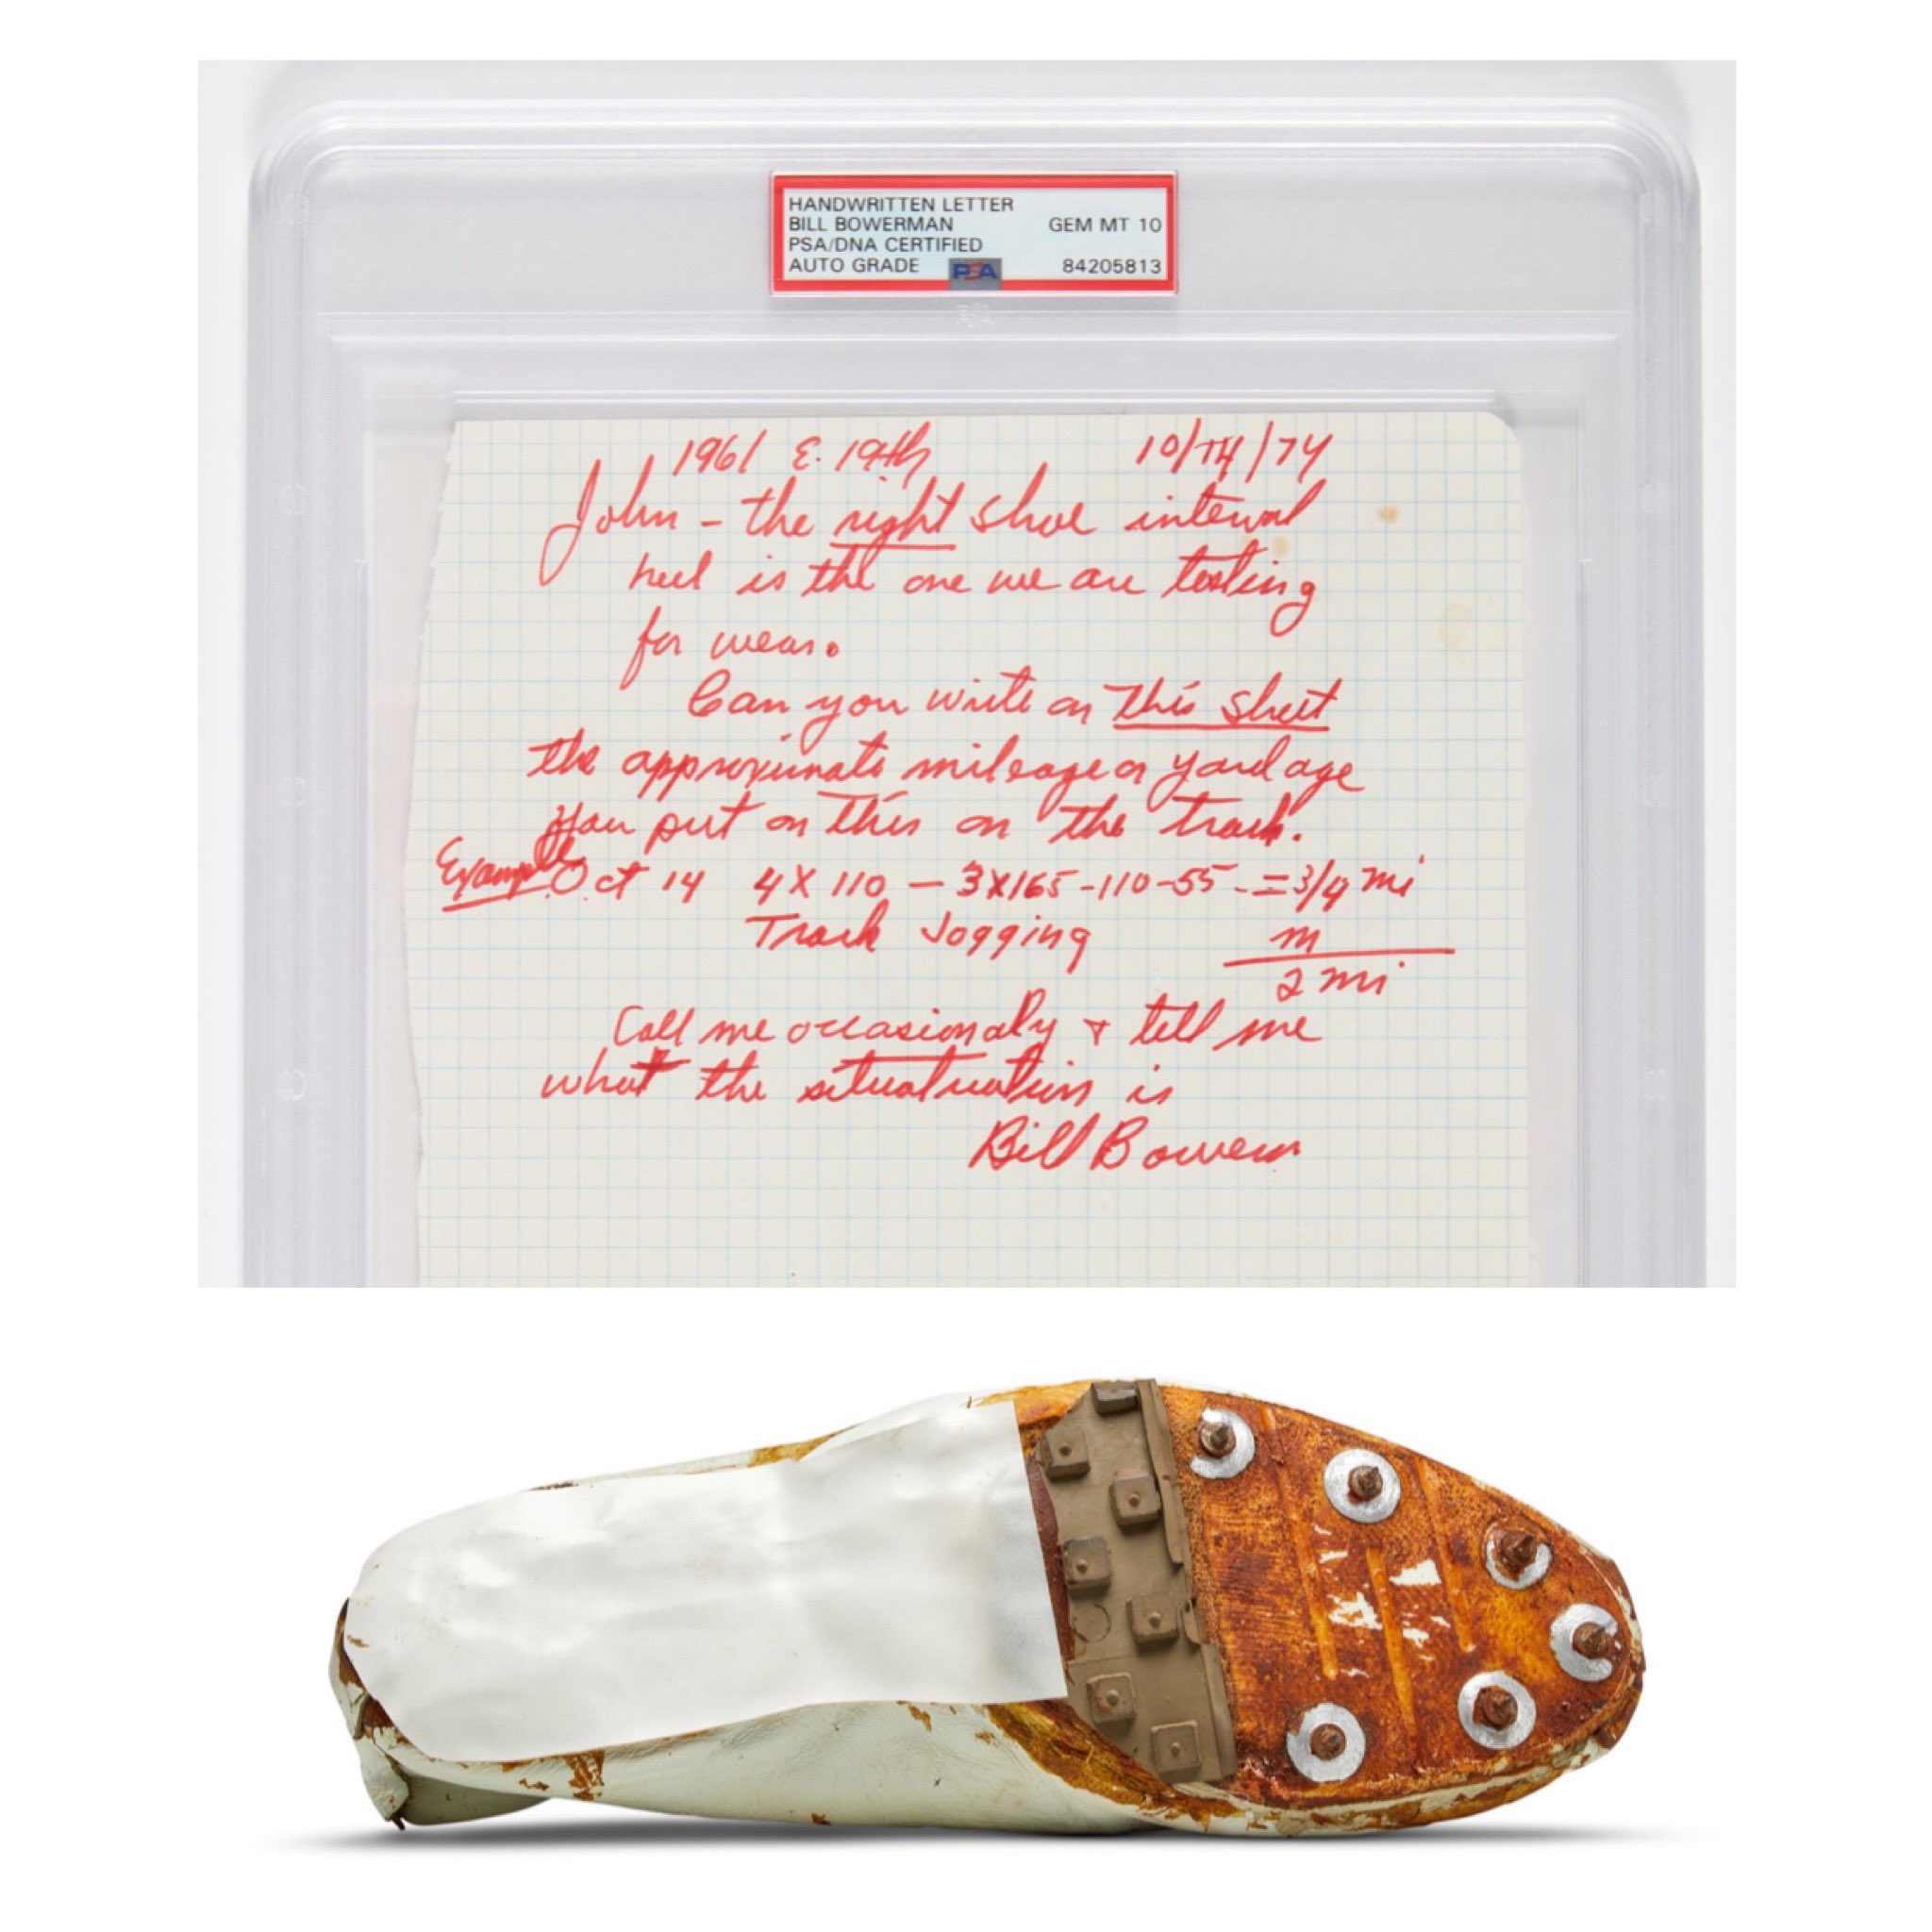 HANDWRITTEN LETTER
BILL BOWERMAN GEM MT 10
PSA/DNA CERTIFIED
AUTO GRADE PSA 84205813
1961 E. 19th 10/14/74
John - the right shoe
heel is the one we are testing
for wear.
Can you write on this sheet
the approximate mileage or yardage
you put on this on the track.
Example Oct 14 4X110 - 3X165-110-55 - = 3/4 mi
Track Jogging m
2 mi
Call me occasionaly & tell me
what the situatuation is
Bill Bowerm